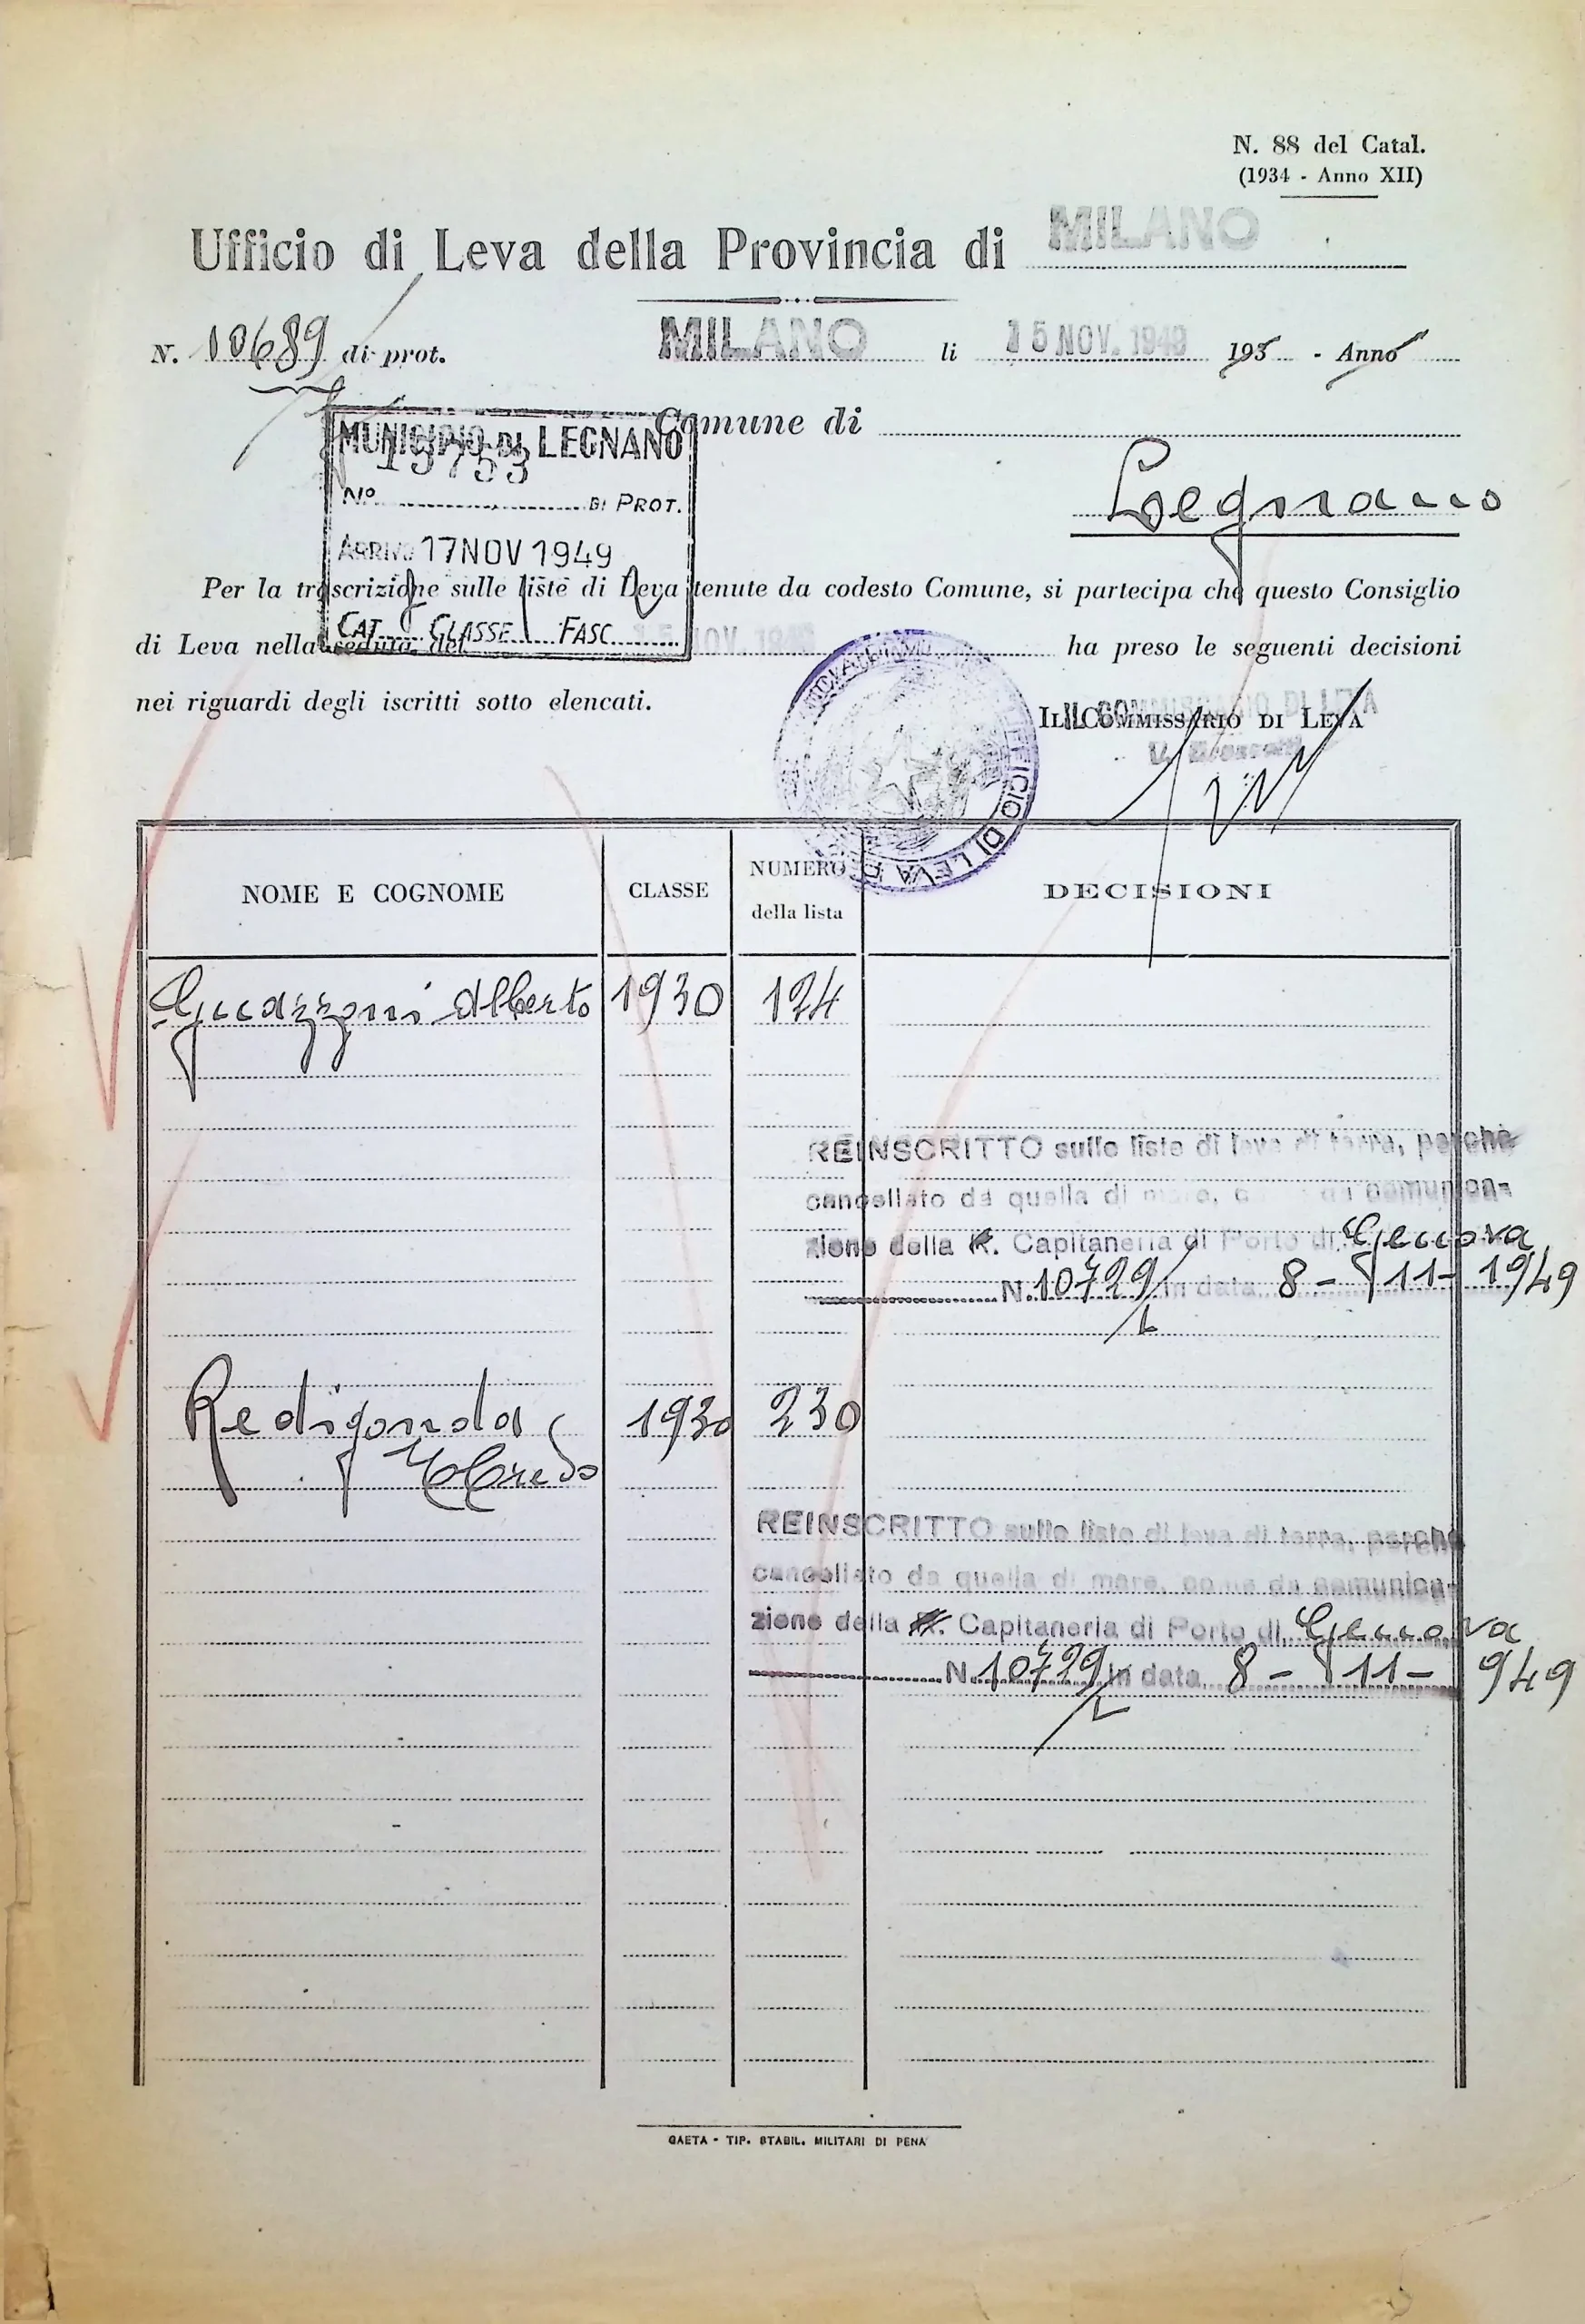 N. 88 del Catal.
(1934 - Anno XII)
Ufficio di Leva della Provincia di MILANO
N. 10689 di prot. MILANO li 15 NOV. 1949 193 - Anno
Comune di
Legnano
MUNICIPIO DI LEGNANO
15753
No DI PROT.
ARRIVO 17 NOV 1949
CAT. CLASSE FASC.
Per la trascrizione sulle liste di Leva tenute da codesto Comune, si partecipa che questo Consiglio
di Leva nella seduta del 15 NOV. 1949 ha preso le seguenti decisioni
nei riguardi degli iscritti sotto elencati.
IL COMMISSARIO DI LEVA
IL COMMISSARIO DI LEVA
UFFICIO DI LEVA
NOME E COGNOME CLASSE NUMERO della lista DECISIONI
Guazzoni Alberto 1930 124
REINSCRITTO sulle liste di leva di terra, perchè
cancellato da quella di mare, come da comunica-
zione della R. Capitaneria di Porto di Genova
N. 10729 in data 8-11-1949
Redigonda 1930 230
Alfredo
REINSCRITTO sulle liste di leva di terra, perchè
cancellato da quella di mare, come da comunica-
zione della R. Capitaneria di Porto di Genova
N. 10729 in data 8-11-1949
GAETA - TIP. STABIL. MILITARI DI PENA